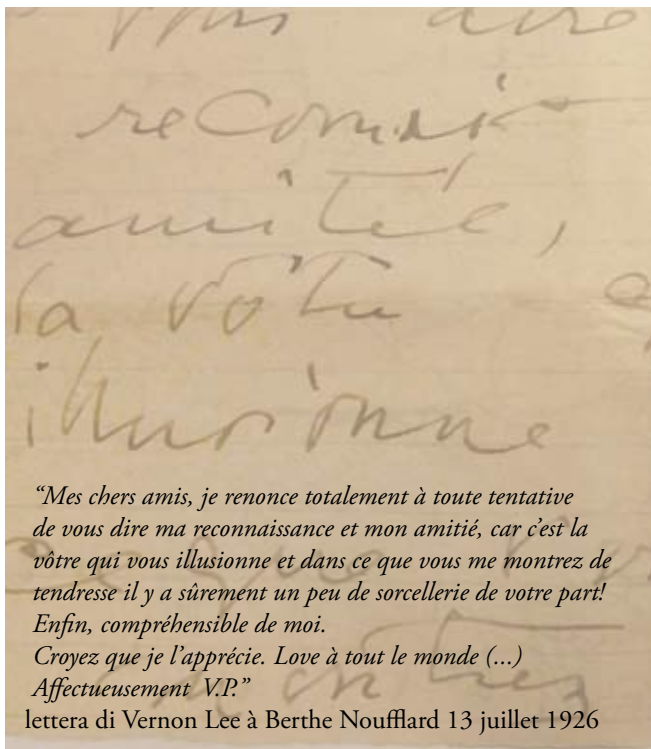 vous dire
reconnais
amitié,
la vôtre
illusionne
ce que
montrez
“Mes chers amis, je renonce totalement à toute tentative
de vous dire ma reconnaissance et mon amitié, car c’est la
vôtre qui vous illusionne et dans ce que vous me montrez de
tendresse il y a sûrement un peu de sorcellerie de votre part!
Enfin, compréhensible de moi.
Croyez que je l’apprécie. Love à tout le monde (...)
Affectueusement V.P.”
lettera di Vernon Lee à Berthe Noufflard 13 juillet 1926